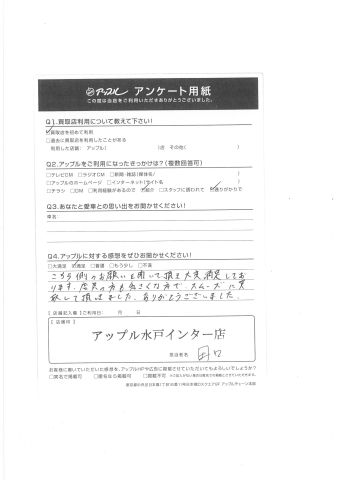 アップル アンケート用紙
この度は当店をご利用いただきありがとうございました。
Q1.買取店利用について教えて下さい!
買取店を初めて利用
□過去に買取店を利用したことがある
利用した店舗: アップル( )店 その他( )
Q2.アップルをご利用になったきっかけは?(複数回答可)
□テレビCM □ラジオCM □新聞・雑誌(媒体名/ )
□アップルのホームページ □インターネット(サイト名 )
□チラシ □DM □利用経験があるので 紹介 □スタッフに誘われて 通りがかりで
Q3.あなたと愛車との思い出をお聞かせください!
車名
Q4.アップルに対する感想をぜひお聞かせください!
□大満足 満足 □普通 □もう少し □不満
こちら側のお願いも聞いて頂き大変満足してお
ります。店員の方も気さくな方で、スムーズに買
取して頂けました。ありがとうございました。
【店舗記入欄】ご利用日: 月 日
【店舗印】
アップル水戸インター店
担当者名 田口
お客様に書いていただいた感想を、アップルHPや広告に掲載させていただいてもよろしいでしょうか?
□実名で掲載可 □匿名なら掲載可 □掲載不可